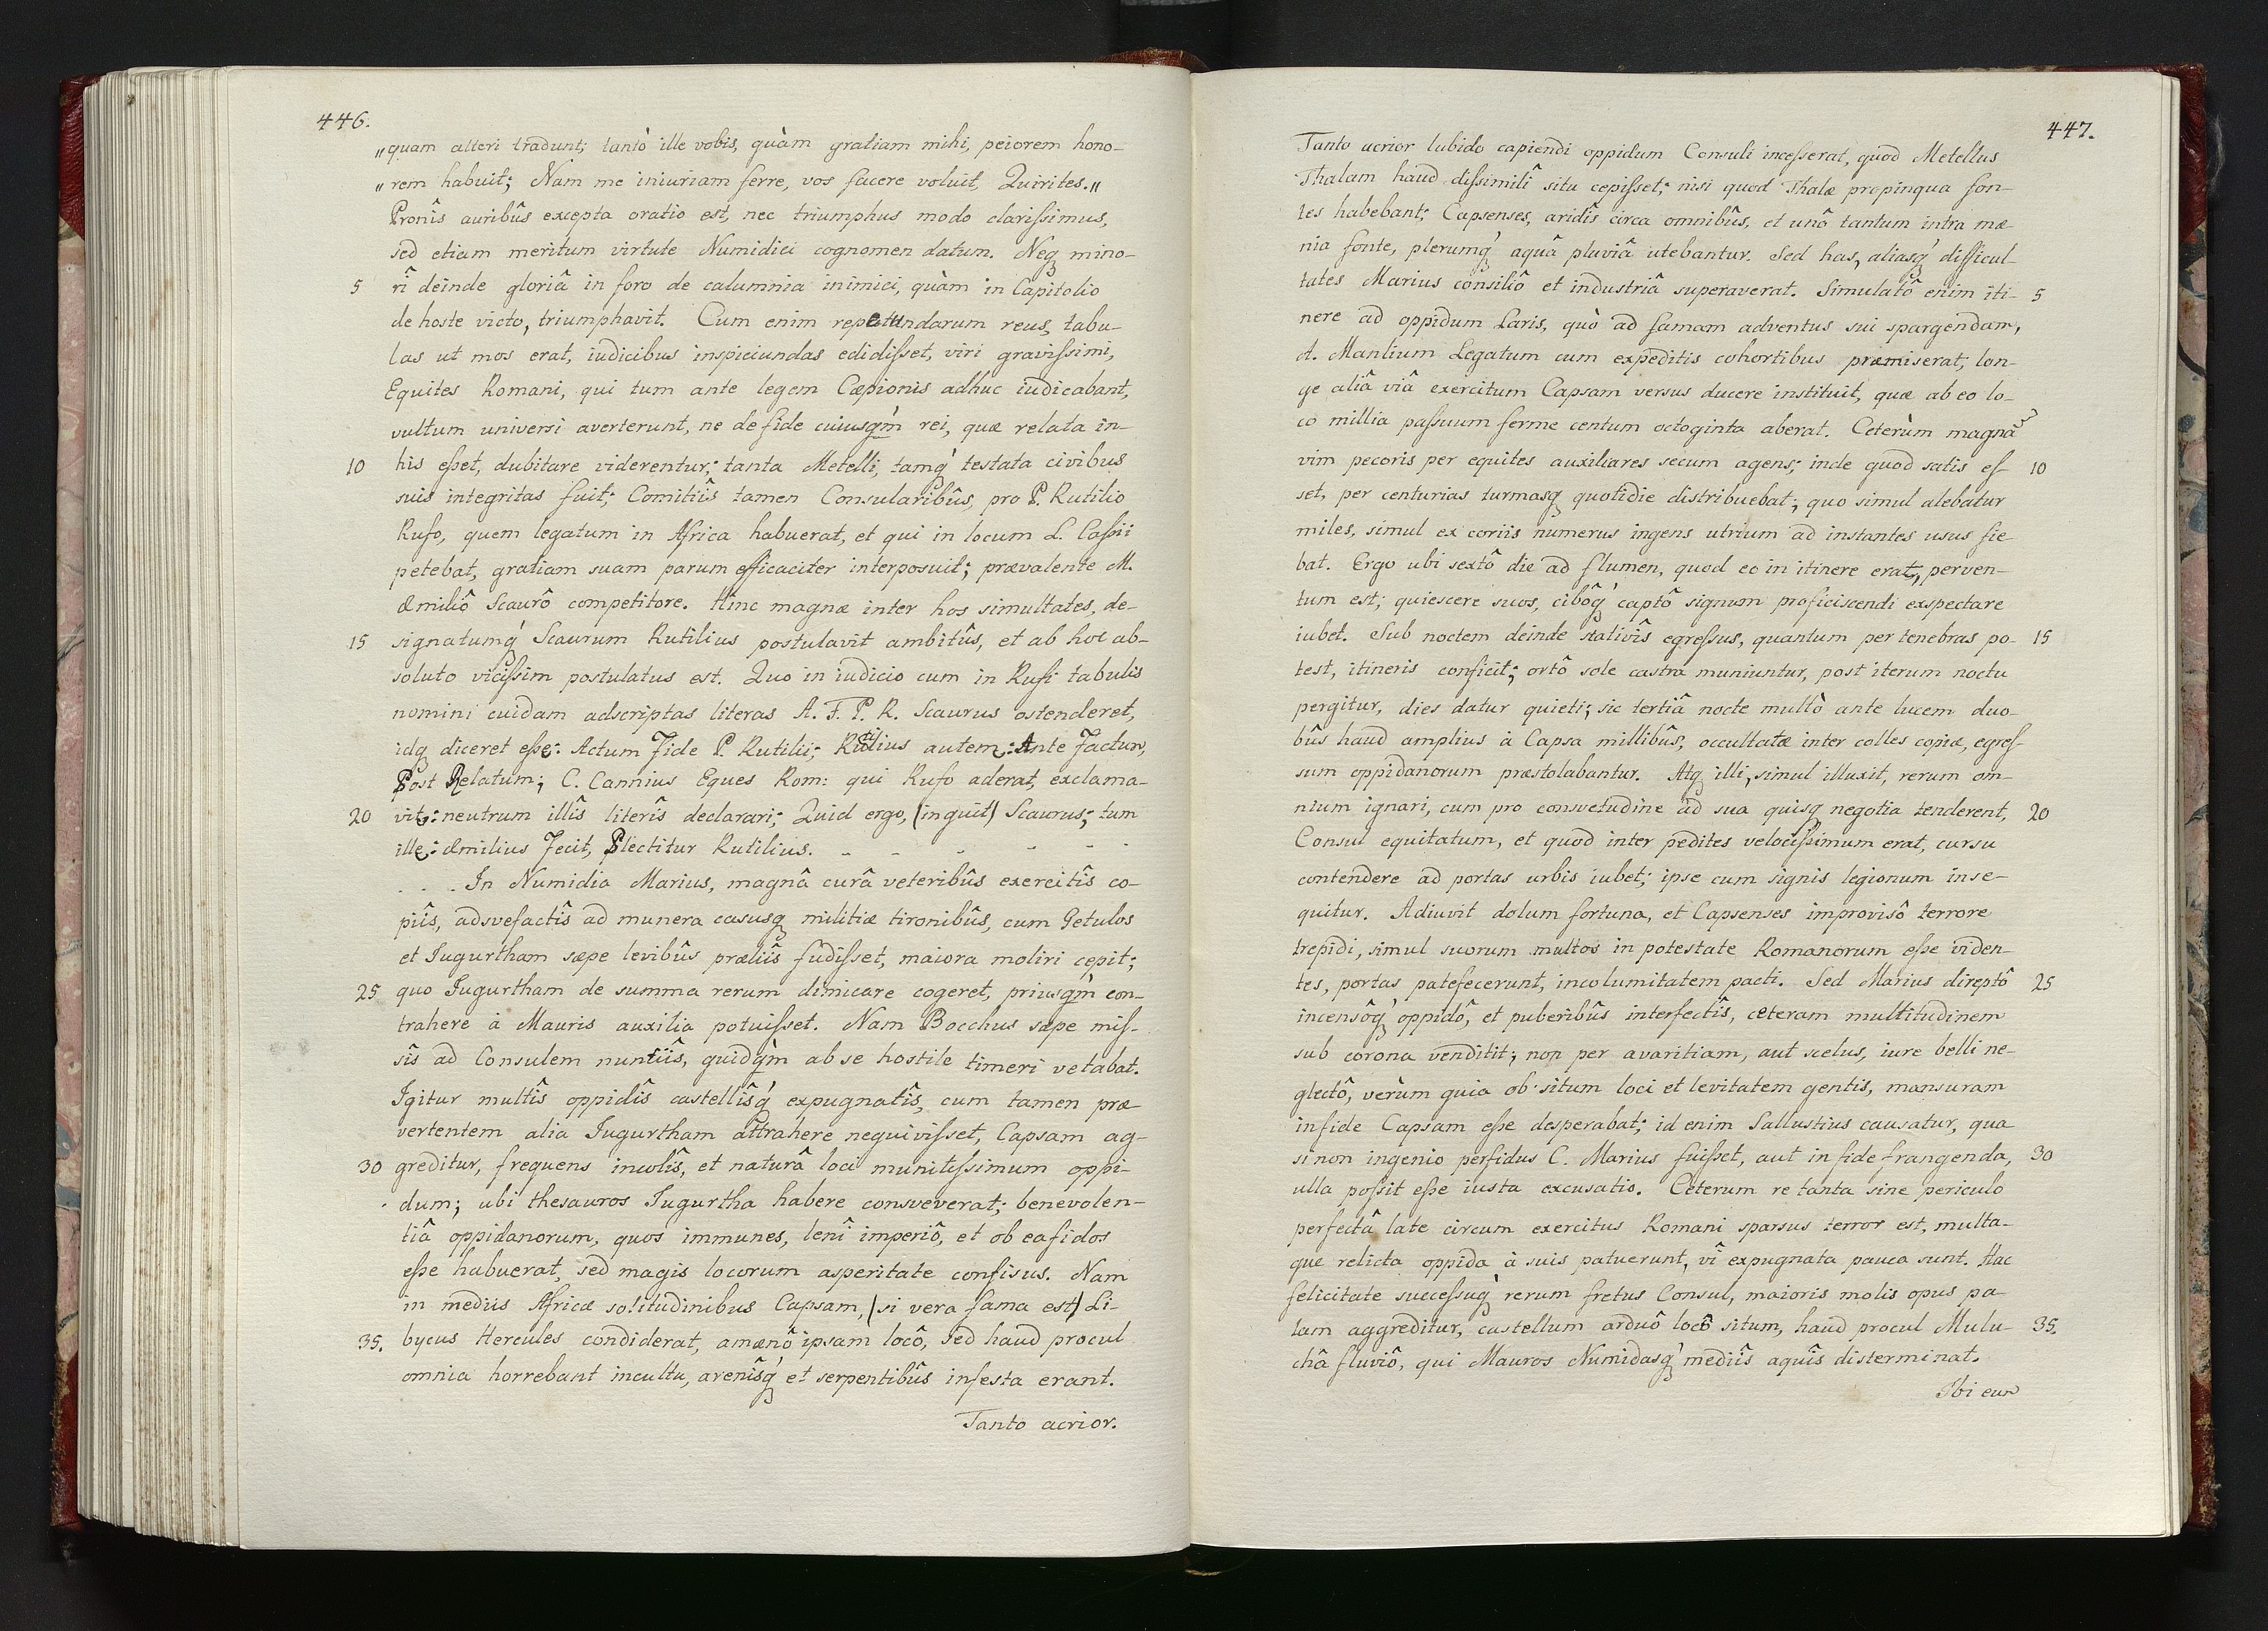 446.
„quam alteri tradunt; tantò ille vobis, quàm gratiam mihi, peiorem hono-
„rem habuit; Nam me iniuriam ferre, vos facere voluit, Quirites.„
Pronîs auribûs excepta oratio est, nec triumphus modo clarissimus,
sed etiam meritum virtute Numidici cognomen datum. Neq mino-
5 rî deinde gloriâ in foro de calumnia inimici, quàm in Capitolio
de hoste victo, triumphavit. Cum enim repetundarum reus, tabu-
las ut mos erat, iudicibus inspiciundas edidisset, viri gravissimi,
Equites Romani, qui tum ante legem Cæpionis adhuc iudicabant,
vultum universi averterunt, ne de fide cuiusqm̀ rei, quæ relata in-
10 his esset, dubitare viderentur; tanta Metelli, tamq́ testata civibus
suis integritas fuit; Comitiîs tamen Consularibûs, pro P. Rutilio
Rufo, quem legatum in Africa habuerat, et qui in locum L. Cassii
petebat, gratiam suam parum efficaciter interposuit; prævalente M.
Æmiliô Scaurô competitore. Hinc magnæ inter hos simultates, de-
15 signatumq́ Scaurum Rutilius postulavit ambitûs, et ab hoc ab-
soluto vicissim postulatus est. Quo in iudicio cum in Rufi tabulis
nomini cuidam adscriptas literas A. F. P. R. Scaurus ostenderet,
idq diceret esse: Actum Fide P. Rutilii; Rutilius autem: Ante Factum,
Post Relatum; C. Cannius Eques Rom: qui Rufo aderat, exclama-
20 vit: neutrum illîs literîs declarari; Quid ergo, (inquit) Scaurus; tum
ille: Æmilius Fecit, Plectitur Rutilius. - - - - - -
. . . In Numidia Marius, magnâ curâ veteribûs exercitîs co-
piîs, adsvefactîs ad munera casusq militiæ tironibûs, cum Getulos
et Iugurtham sæpe levibûs præliîs fudisset, maiora moliri cepit;
25 quo Iugurtham de summa rerum dimicare cogeret, priusqm̀ con-
trahere à Mauris auxilia potuisset. Nam Bocchus sæpe mis-
sîs ad Consulem nuntiîs, quidqm̀ ab se hostile timeri vetabat.
Igitur multîs oppidîs castellîsq́ expugnatîs, cum tamen præ
vertentem alia Iugurtham attrahere nequivisset, Capsam ag-
30 greditur, frequens incolîs, et naturâ loci munitissimum oppi-
dum; ubi thesauros Iugurtha habere consveverat; benevolen-
tiâ oppidanorum, quos immunes, lenî imperiô, et ob ea fidos
esse habuerat, sed magis locorum asperitate confisus. Nam
in mediis Africæ solitudinibus Capsam, (si vera fama est) Li-
35. bycus Hercules condiderat, amænô ipsam locô, sed haud procul
omnia horrebant incultu, arenîsq́ et serpentibûs infesta erant.
Tanto acrior.
447.
Tanto acrior lubido capiendi oppidum Consuli incesserat, quod Metellus
Thalam haud dissimilî situ cepisset; nisi quod Thalæ propinqua fon-
tes habebant; Capsenses, aridîs circa omnibûs, et unô tantum intra mæ
nia fonte, plerumq́ aquâ pluviâ utebantur. Sed has, aliasq́ difficul-
tates Marius consiliô et industriâ superaverat. Simulatô enim iti- 5
nere ad oppidum Laris, quò ad famam adventus sui spargendam,
A. Manlium Legatum cum expeditis cohortibus præmiserat, lon-
ge aliâ viâ exercitum Capsam versus ducere instituit, quæ ab eo lo-
co millia passuum ferme centum octoginta aberat. Ceterùm magnã
vim pecoris per equites auxiliares secum agens; inde quod satis es- 10
set, per centurias turmasq quotidie distribuebat; quo simul alebatur
miles, simul ex coriis numerus ingens utrium ad instantes usus fie
bat. Ergo ubi sextô die ad flumen, quod eo in itinere erat, perven-
tum est; quiescere suos, cibôq́ captô signum proficiscendi exspectare
iubet. Sub noctem deinde stativîs egressus, quantum per tenebras po- 15
test, itineris conficit; ortô sole castra muniuntur, post iterum noctu
pergitur, dies datur quieti; sic tertiâ nocte multò ante lucem duo-
bûs haud amplius à Capsa millibûs, occultatæ inter colles copiæ, egres-
sum oppidanorum præstolabantur. Atq illi, simul illuxit, rerum om-
nium ignari, cum pro consvetudine ad sua quisq negotia tenderent, 20
Consul equitatum, et quod inter pedites velocissimum erat, cursu
contendere ad portas urbis iubet; ipse cum signis legionum inse-
quitur. Adiuvit dolum fortuna, et Capsenses improvisô terrore
trepidi, simul suorum multos in potestate Romanorum esse viden-
tes, portas patefecerunt, incolumitatem pacti. Sed Marius direptô 25
incensôq́ oppidô, et puberibûs interfectîs, ceteram multitudinem
sub corona venditit; non per avaritiam, aut scelus, iure belli ne-
glectô, verùm quia ob situm loci et levitatem gentis, mansuram
in fide Capsam esse desperabat; id enim Sallustius causatur, qua
si non ingenio perfidus C. Marius fuisset, aut in fide frangenda, 30
ulla possit esse iusta excusatio. Ceterum re tanta sine periculo
perfectâ late circum exercitus Romani sparsus terror est, multa-
que relicta oppida à suis patuerunt, vî expugnata pauca sunt. Hac
felicitate successuq́ rerum fretus Consul, maioris molis opus pa
lam aggreditur, castellum arduô locô situm, haud procul Mulu- 35.
châ fluviô, qui Mauros Numidasq́ mediîs aquîs disterminat.
Ibi eum